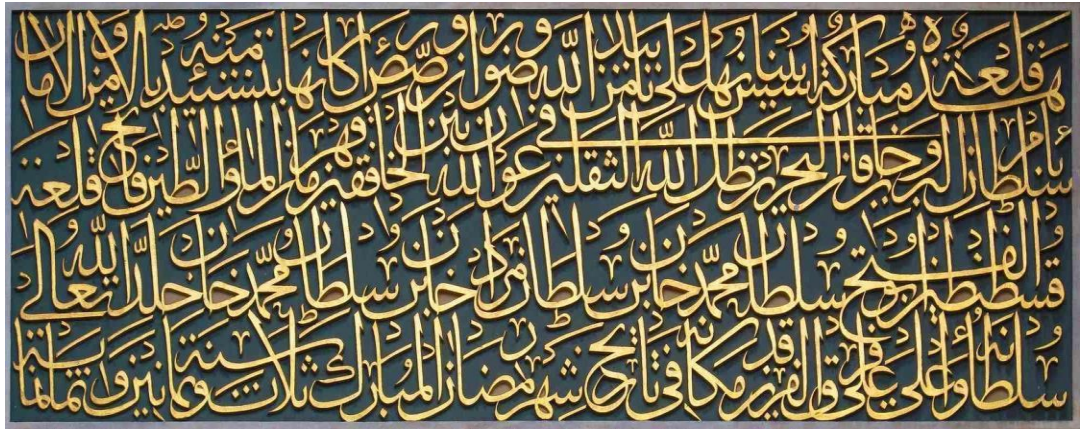 هذه قلعة مباركة اسس بنيانها على تأييد من الله ورضوان ورصص أركانها بتشييد منه بالامن والامان
سلطان البرين وخاقان البحرين ظل الله في الثقلين عون الله بين الخافقين قهرمان الماء والطين فاتح قلعة
قسطنطينية ابو الفتح سلطان محمد خان بن سلطان مراد خان بن سلطان محمد خان خلد الله تعالى
سلطانه وأعلى على فرق الفرقدين مكانه في تاريخ شهر رمضان المبارك سنة ثلاث وثمانين وثمانمائة